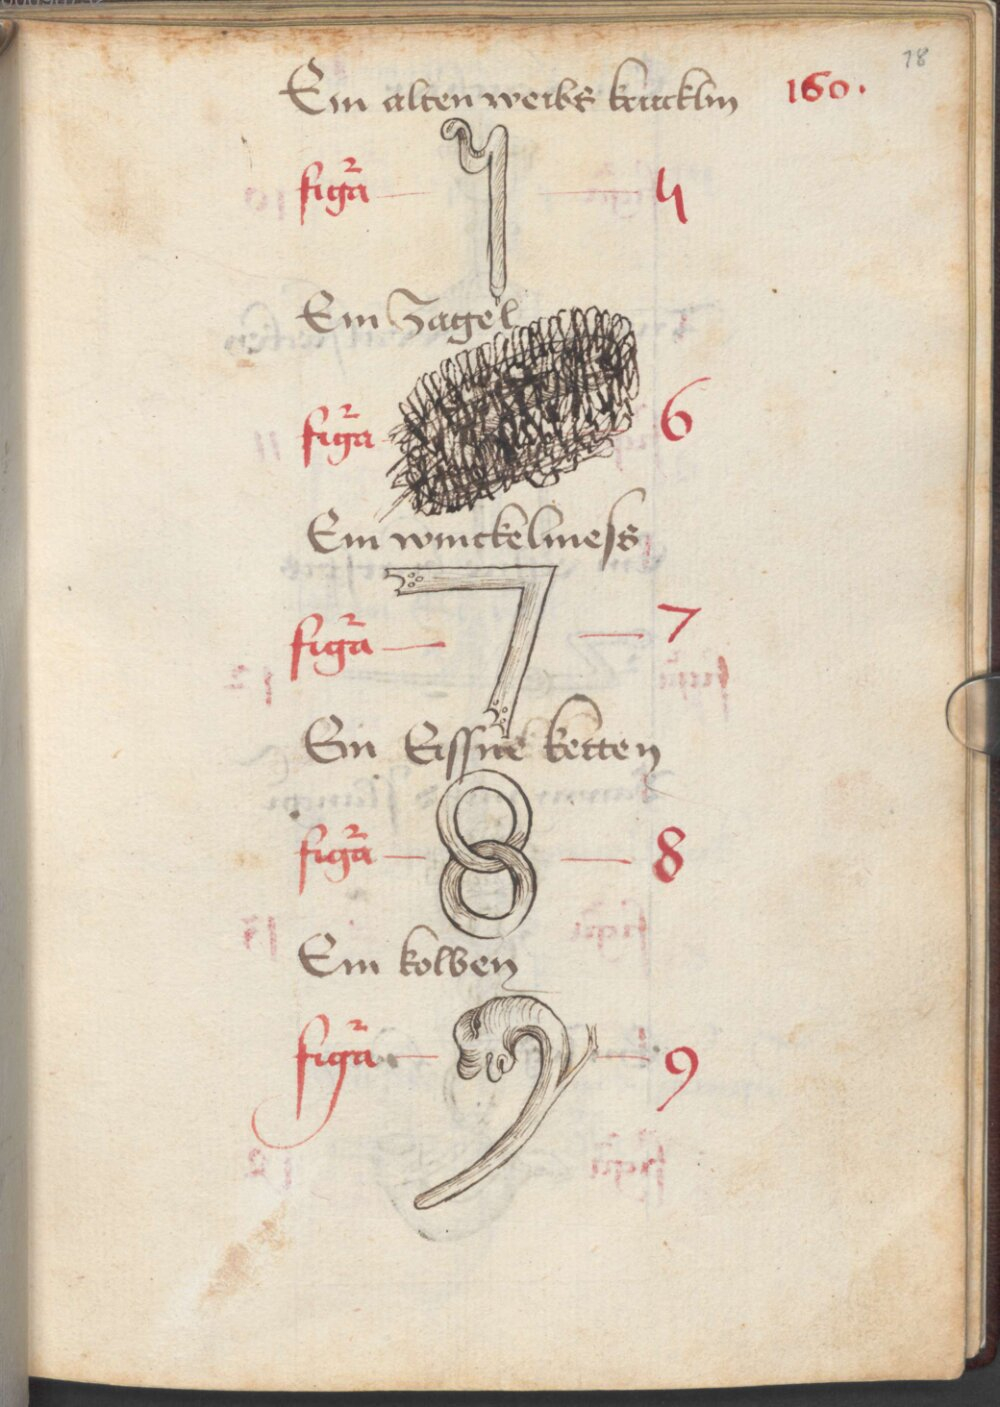 78
Ein alten weibs krucklin 160.
figa 5
Ein Zagel
figa 6
Ein winckelmess
figa 7
Ein Eissne ketten
figa 8
Ein kolben
figa 9